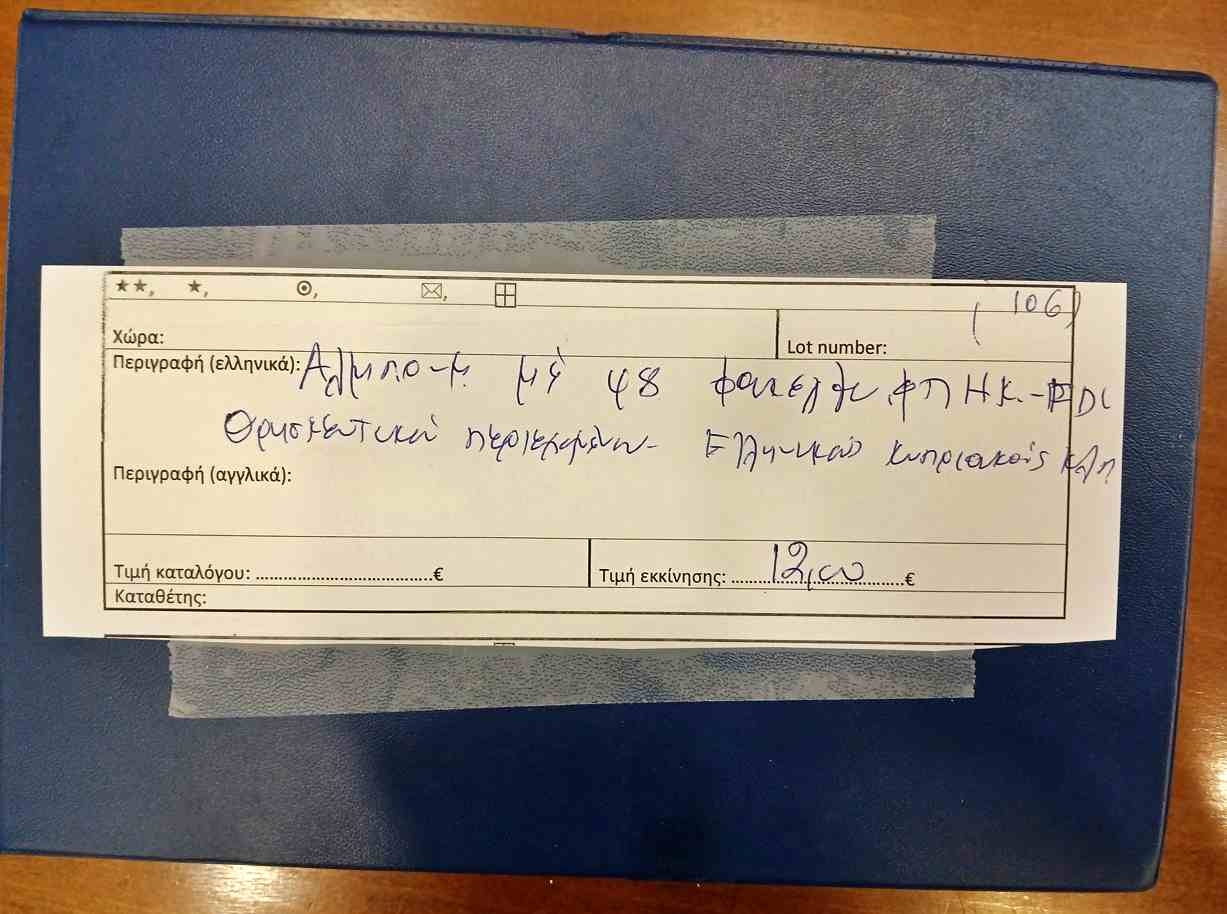 ★★, ★, ⊙, ✉, ⊞ (106)
Χώρα: Lot number:
Περιγραφή (ελληνικά): Αλμπουμ μέ 48 φακελλ. ΦΠΗΚ.-FDC
Θρησκευτικού περιεχομένου- Ελληνικούς κυπριακούς κλπ
Περιγραφή (αγγλικά):
Τιμή καταλόγου: ...................................€ Τιμή εκκίνησης: 12,00 €
Καταθέτης: